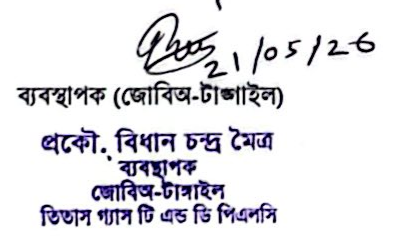 21/05/26
ব্যবস্থাপক (জোবিঅ-টাঙ্গাইল)
প্রকৌ. বিধান চন্দ্র মৈত্র
ব্যবস্থাপক
জোবিঅ-টাঙ্গাইল
তিতাস গ্যাস টি এন্ড ডি পিএলসি